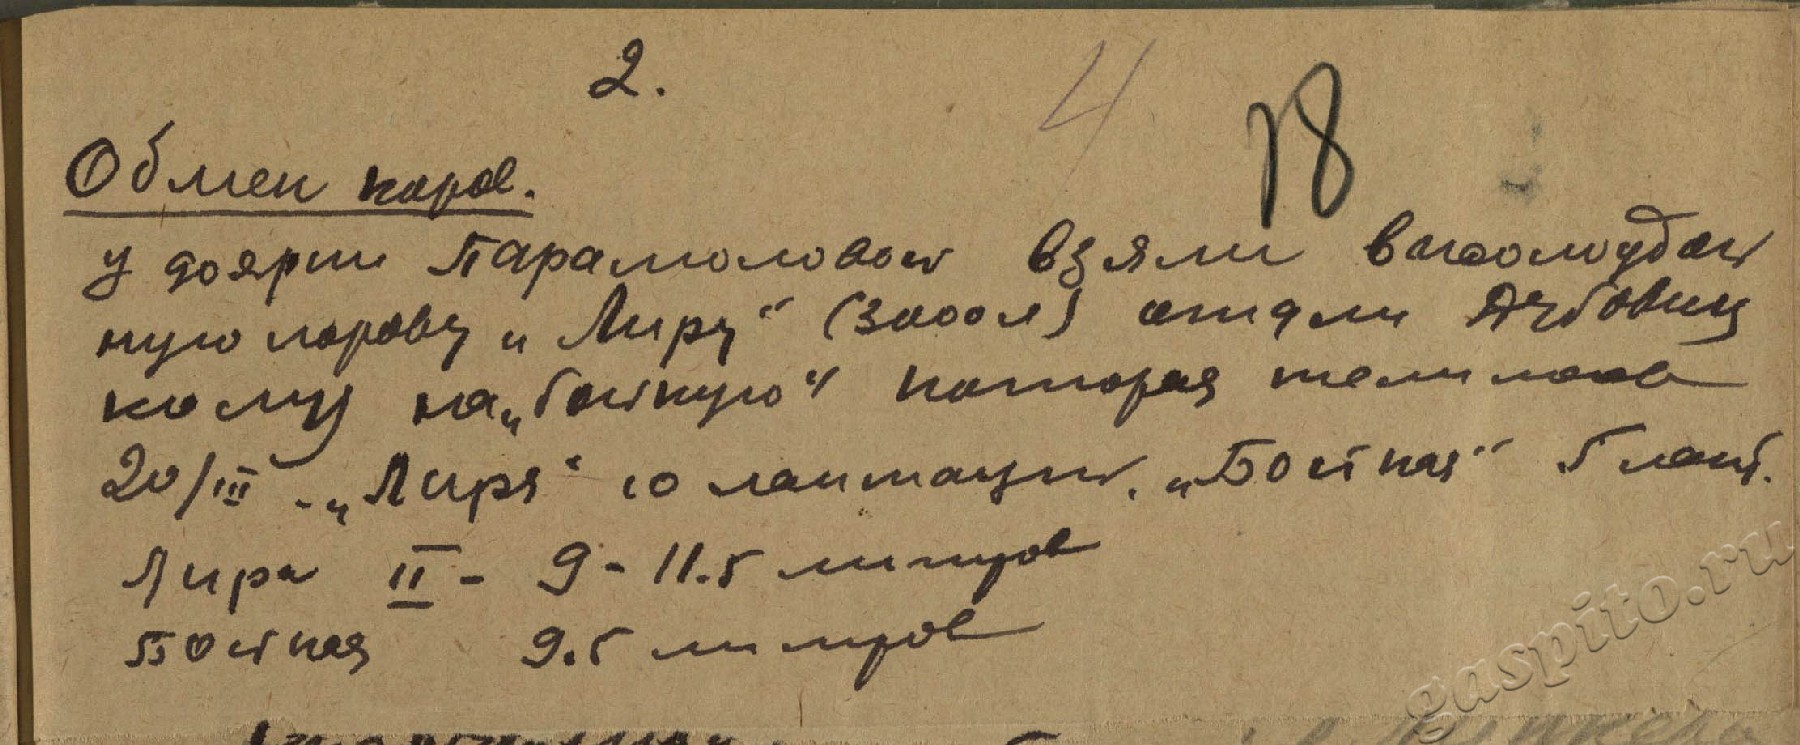 2.
4
78
Обмен коров.
у доярки Парамоловой взяли высокоудой
ную корову „Лиру“ (3000л) отдали Дубовиц
кому на „бойкую“ которая телилась
20/III - „Лира“ 10 лактации. „Бойкая“ 5 лакт.
Лира II - 9 - 11.5 литров
Бойкая 9.5 литров
gaspito.ru